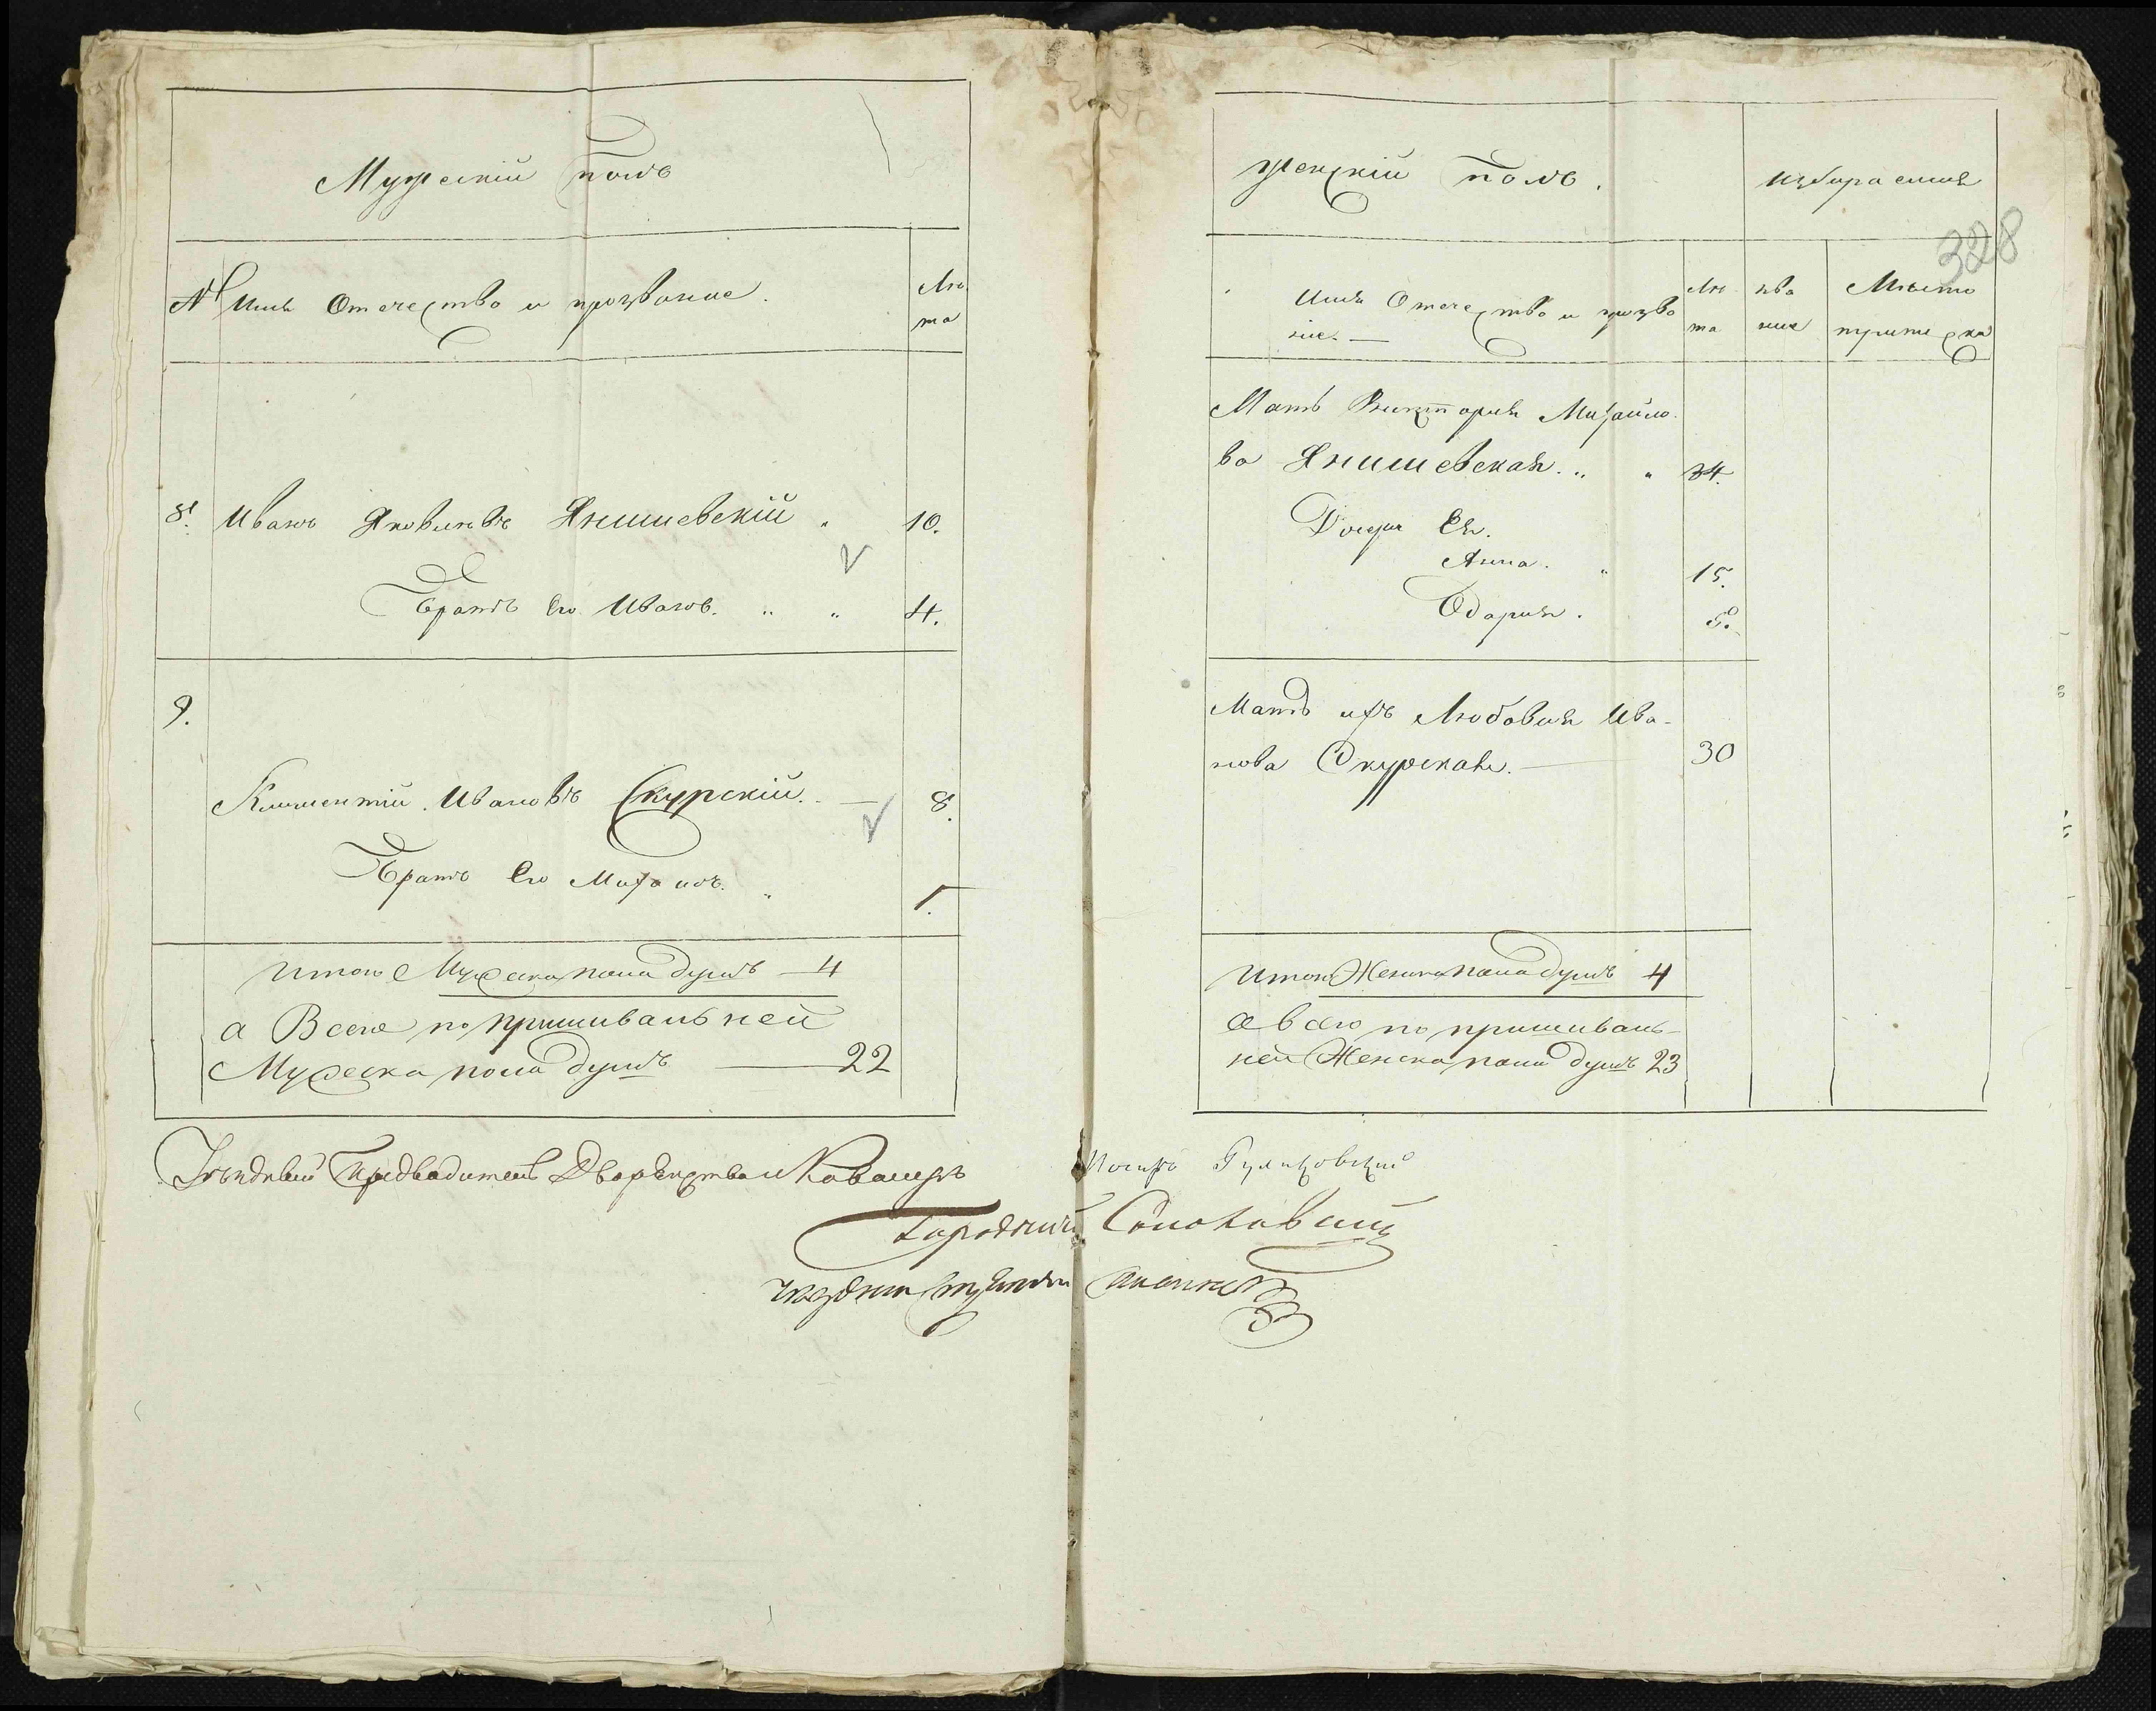 Мужескій полъ
№ Имя Отечество и прозваніе.
Лѣ
та
8. Иванъ Яковлевъ Янишевскій 10.
Братъ Его Иванъ. 4.
9.
Климентій Ивановъ Скурскій. 8.
Братъ Его Михаилъ. 1.
Итого Мужеска пола душъ — 4
а Всего по
Мужеска пола душъ — 22
Женскій полъ.
328
Имя Отечество и прозва
ніе. —
Лѣ
та
зва
ніе
Мѣсто
Мать Викторія Михайло
ва Янишевская. 34.
Дочери Ея.
Анна. 15.
Одарія. 8.
Мать ихъ Любовия Ива-
нова Скурская. — 30
Итого Женска пола душъ 4
а всего по
ней Женска пола душъ 23
Уѣздный Предводитель Дворянства и Кавалеръ Іосифъ Гулицовский
Городничій